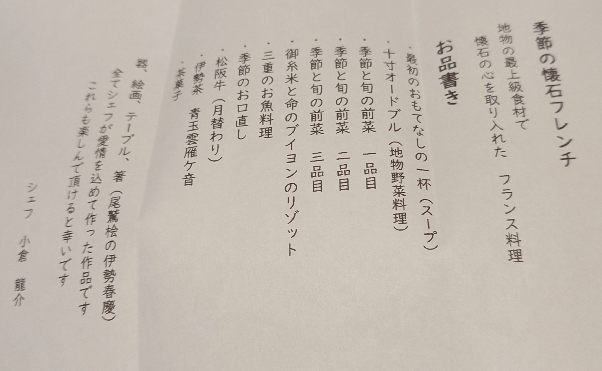 季節の懐石フレンチ
地物の最上級食材で
懐石の心を取り入れた フランス料理
お品書き
・最初のおもてなしの一杯（スープ）
・十寸オードブル（地物野菜料理）
・季節と旬の前菜 一品目
・季節と旬の前菜 二品目
・季節と旬の前菜 三品目
・御糸米と命のブイヨンのリゾット
・三重のお魚料理
・季節のお口直し
・松阪牛（月替わり）
・伊勢茶 青玉雲雁ケ音
・茶菓子
器、絵画、テーブル、箸（尾鷲桧の伊勢春慶）
全てシェフが愛情を込めて作った作品です
これらも楽しんで頂けると幸いです
シェフ 小倉 龍介